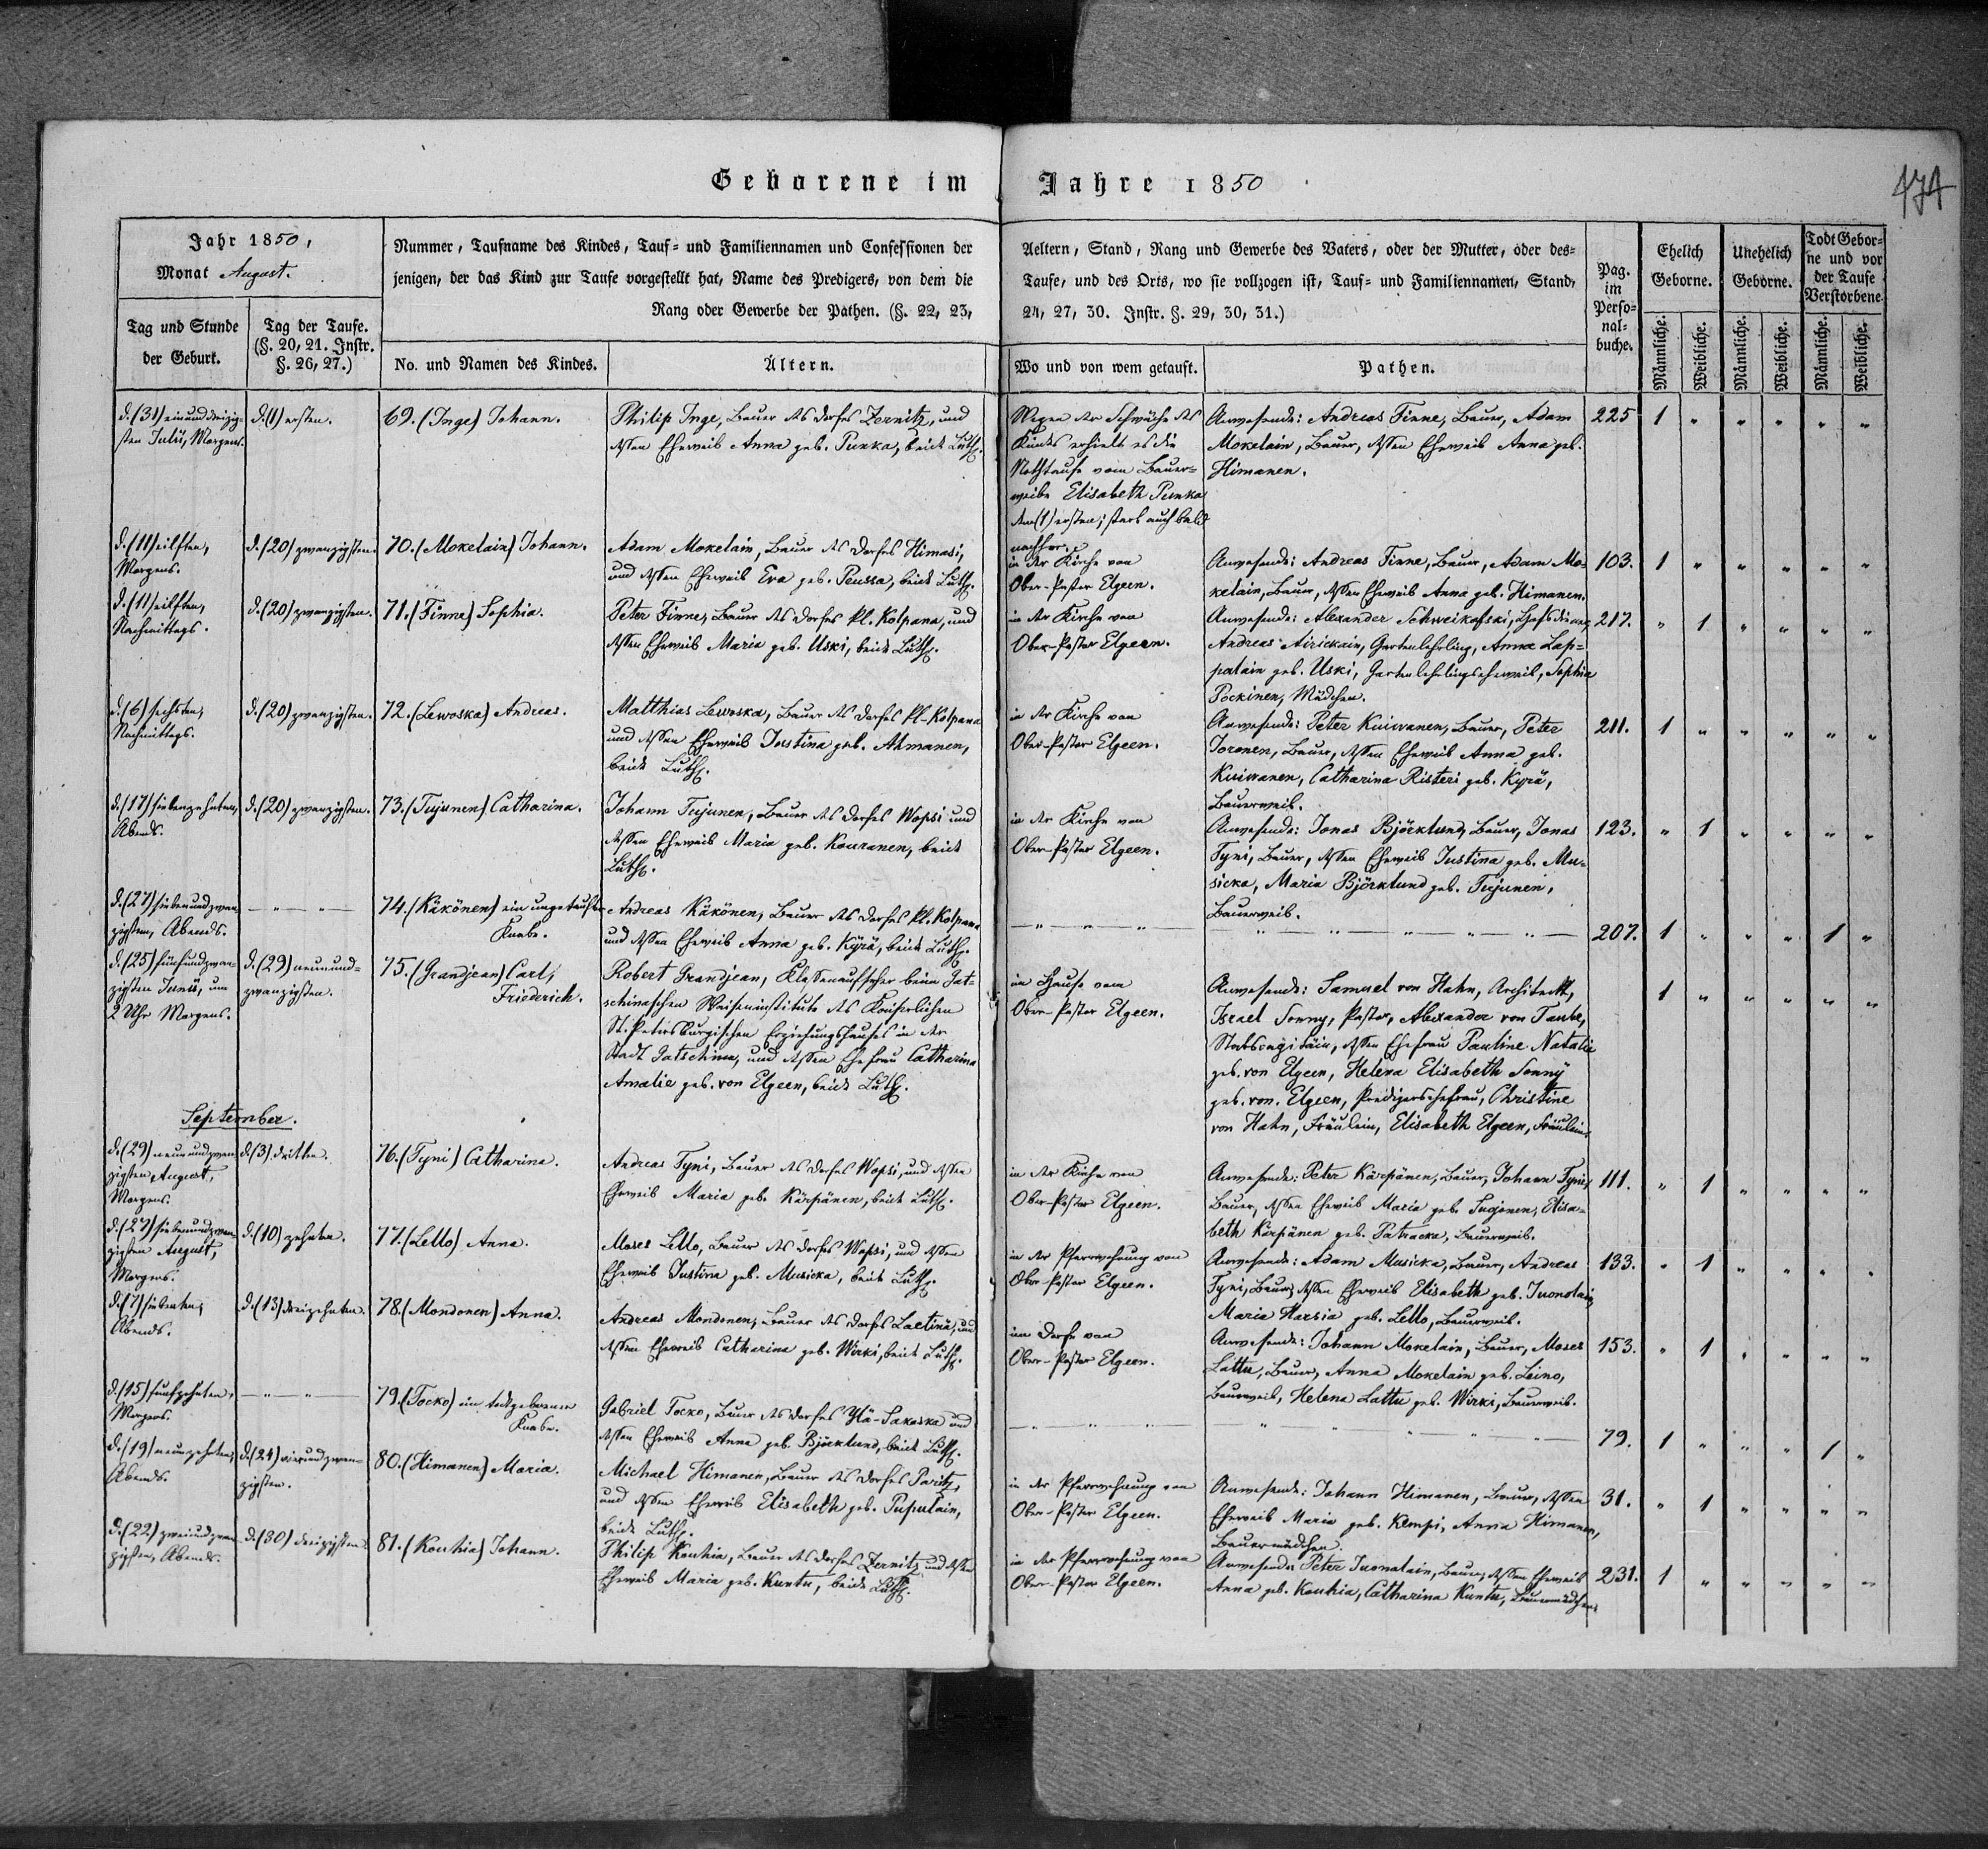 Geborene im Jahre 1850
474
Jahr 1850,
Monat August.
Tag und Stunde
der Geburt.
Tag der Taufe.
(§. 20, 21. Instr.
§. 26, 27.)
Nummer, Taufname des Kindes, Tauf- und Familiennamen und Confessionen der
jenigen, der das Kind zur Taufe vorgestellt hat, Name des Predigers, von dem die
Rang oder Gewerbe der Pathen. (§. 22, 23,
No. und Namen des Kindes.
Ältern.
Aeltern, Stand, Rang und Gewerbe des Vaters, oder der Mutter, oder des-
Taufe, und des Orts, wo sie vollzogen ist, Tauf- und Familiennamen, Stand,
24, 27, 30. Instr. §. 29, 30, 31.)
Wo und von wem getauft.
Pathen.
Pag.
im
Perso-
nal-
buche.
Ehelich
Geborne.
Unehelich
Geborne.
Todt Gebor-
ne und vor
der Taufe
Verstorbene
Männliche.
Weibliche.
Männliche.
Weibliche.
Männliche.
Weibliche.
d. (31) einunddreizig-
sten Julii, Morgens.
d. (1) ersten.
69. (Inge) Johann.
Philip Inge, Bauer des Dorfes Zernitz, und
dessen Eheweib Anna geb. Punka, beide Luth.
Wegen der Schwäche des
Kindes erhielt es die
Nothtaufe vom Bauer-
weibe Elisabeth Punka
den (1) ersten; starb auch bald
nachher.
Anwesende: Andreas Finne, Bauer, Adam
Mokelain, Bauer, dessen Eheweib Anna geb.
Himanen.
225 1 " " " " "
d. (11) eilften,
Morgens.
d. (20) zwanzigsten.
70. (Mokelain) Johann.
Adam Mokelain, Bauer des Dorfes Himasi,
und dessen Eheweib Eva geb. Peussa, beide Luth.
in der Kirche von
Ober-Pastor Elgeen.
Anwesende: Andreas Finne, Bauer, Adam Mo-
kelain, Bauer, dessen Eheweib Anna geb. Himanen.
103. 1 " " " " "
d. (11) eilften,
Nachmittags.
d. (20) zwanzigsten.
71. (Finne) Sophia.
Peter Finne, Bauer des Dorfes Kl. Kolpana, und
dessen Eheweib Maria geb. Uski, beide Luth.
in der Kirche von
Ober-Pastor Elgeen.
Anwesende: Alexander Schweikofski,
Andreas Airickain, Gartenlehrling, Anna Lap-
patain geb. Uski, Gartenlehrlingseheweib, Sophia
Pockinen, Mädchen.
217. " 1 " " " "
d. (6) sechsten,
Nachmittags.
d. (20) zwanzigsten.
72. (Lewoska) Andreas.
Matthias Lewoska, Bauer des Dorfes Kl-Kolpana
und dessen Eheweib Justina geb. Ahmanen,
beide Luth.
in der Kirche von
Ober-Pastor Elgeen.
Anwesende: Peter Kuiwanen, Bauer, Peter
Toronen, Bauer, dessen Eheweib Anna geb.
Kuiwanen, Catharina Risteri geb. Kyrä,
Bauerweib.
211. 1 " " " " "
d. (17) siebenzehnten,
Abends.
d. (20) zwanzigsten.
73. (Tujunen) Catharina.
Johann Tujunen, Bauer des Dorfes Wopsi und
dessen Eheweib Maria geb. Kouranen, beide
Luth.
in der Kirche von
Ober-Pastor Elgeen.
Anwesende: Jonas Björklund, Bauer, Jonas
Tyni, Bauer, dessen Eheweib Justina geb. Mu-
sicka, Maria Björklund geb. Tujunen,
Bauerweib.
123. " 1 " " " "
d. (27) siebenundzwan-
zigsten, Abends.
— " — " —
74. (Käkönen) ein ungetaufter
Knabe.
Andreas Käkönen, Bauer des Dorfes Kl. Kolpana
und dessen Eheweib Anna geb. Kyrä, beide Luth.
— " — " — " —
" — " — " — " — " —
207. 1 " " " 1 "
d. (25) fünfundzwan-
zigsten Junii, um
2 Uhr Morgens.
d. (29) neunund-
zwanzigsten.
75. (Grandjean) Carl,
Friederich.
Robert Grandjean, Klassenaufseher beim Gat-
schinaschen Waiseninstitute des Kaiserlichen
St. Petersburgischen Erziehungshauses in der
Stadt Gatschina, und dessen Ehefrau Catharina
Amalie geb. von Elgeen, beide Luth.
im Hause vom
Ober-Pastor Elgeen.
Anwesende: Samuel von Hahn, Architekt,
Israel Sonny, Pastor, Alexander von Taube,
Stabscapitain, dessen Ehefrau Pauline Natalie
geb. von Elgeen, Helena Elisabeth Sonny
geb. von Elgeen, Predigersehefrau, Christine
von Hahn, Fräulein, Elisabeth Elgeen, Fräulein.
1 " " " " "
September.
d. (29) neunundzwan-
zigsten August,
Morgens.
d. (3) dritten.
76. (Tyni) Catharina.
Andreas Tyni, Bauer des Dorfes Wopsi, und dessen
Eheweib Maria geb. Kärpänen, beide Luth.
in der Kirche von
Ober-Pastor Elgeen.
Anwesende: Peter Kärpänen, Bauer, Johann Tyni,
Bauer, dessen Eheweib Maria geb. Tujonen, Elisa-
beth Kärpänen geb. Patracka, Bauerweib.
111. " 1 " " " "
d. (27) siebenundzwan-
zigsten August,
Morgens.
d. (10) zehnten.
77. (Lello) Anna.
Moses Lello, Bauer des Dorfes Wopsi, und dessen
Eheweib Justina geb. Musicka, beide Luth.
in der Pfarrwohnung von
Ober-Pastor Elgeen.
Anwesende: Adam Musicka, Bauer, Andreas
Tyni, Bauer, dessen Eheweib Elisabeth geb. Tuonolain,
Maria Harsia geb. Lello, Bauerweib.
133. " 1 " " " "
d. (7) siebenten,
Abends.
d. (13) dreizehnten.
78. (Mondonen) Anna.
Andreas Mondonen, Bauer des Dorfes Laetinä, und
dessen Eheweib Catharina geb. Wirki, beide Luth.
im Dorfe von
Ober-Pastor Elgeen.
Anwesende: Johann Mokelain, Bauer, Moses
Lattu, Bauer, Anna Mokelain geb. Leino,
Bauerweib, Helena Lattu geb. Wirki, Bauerweib.
153. " 1 " " " "
d. (15) fünfzehnten,
Morgens.
— " — " —
79. (Tocko) ein todtgeborener
Knabe.
Gabriel Tocko, Bauer des Dorfes Ylä-Sakoska und
dessen Eheweib Anna geb. Björklund, beide Luth.
— " — " — " —
" — " — " — " —
79. 1 " " " 1 "
d. (19) neunzehnten,
Abends.
d. (24) vierundzwan-
zigsten.
80. (Himanen) Maria.
Michael Himanen, Bauer des Dorfes Paritz,
und dessen Eheweib Elisabeth geb. Puputain,
beide Luth.
in der Pfarrwohnung von
Ober-Pastor Elgeen.
Anwesende: Johann Himanen, Bauer, dessen
Eheweib Maria geb. Kempi, Anna Himanen,
Bauermädchen.
31. " 1 " " " "
d. (22) zweiundzwan-
zigsten, Abends.
d. (30) dreizigsten
81. (Kouhia) Johann.
Philip Kouhia, Bauer des Dorfes Zernitz und dessen
Eheweib Maria geb. Kuntu, beide Luth.
in der Pfarrwohnung von
Ober-Pastor Elgeen.
Anwesende: Peter Tuonalain, Bauer, dessen Eheweib
Anna geb. Kouhia, Catharina Kuntu, Bauermädchen.
231. 1 " " " " "